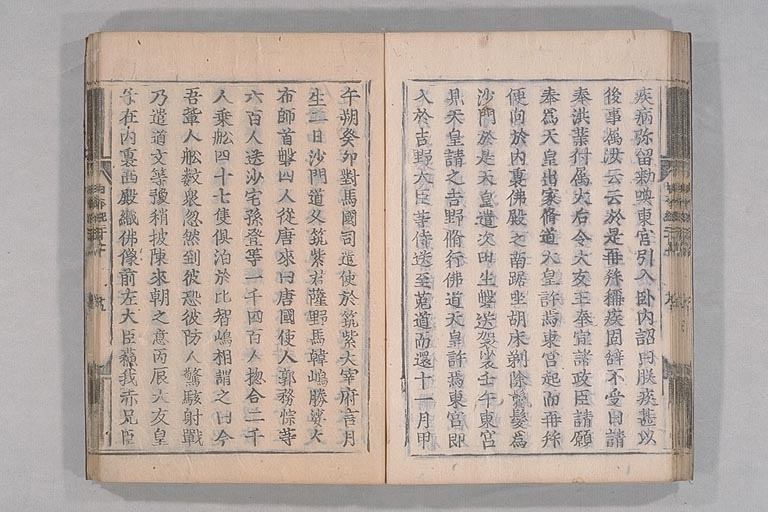 疾病弥留勅喚東宮引入卧内詔曰朕疾甚以
後事属汝云云於是再拜稱疾固辞不受曰請
奉洪業付属大后令大友王奉宣諸政臣請願
奉爲天皇出家脩道天皇許焉東宮起而再拜
便向於内裏佛殿之南踞坐胡床剃除鬢髮爲
沙門於是天皇遣次田生磐送袈裟壬午東宮
見天皇請之吉野脩行佛道天皇許焉東宮即
入於吉野大臣等侍送至菟道而還十一月甲
午朔癸卯對馬國司遣使於筑紫大宰府言月
生二日沙門道久筑紫君薩野馬韓嶋勝娑大
布師首磐四人從唐來曰唐國使人郭務悰等
六百人送沙宅孫登等一千四百人揔合二千
人乗舩四十七隻俱泊於比智嶋相謂之曰今
吾輩人舩數衆忽然到彼恐彼防人驚駭射戰
乃遣道文等豫稍披陳來朝之意丙辰大友皇
子在内裏西殿織佛像前左大臣蘇我赤兄臣